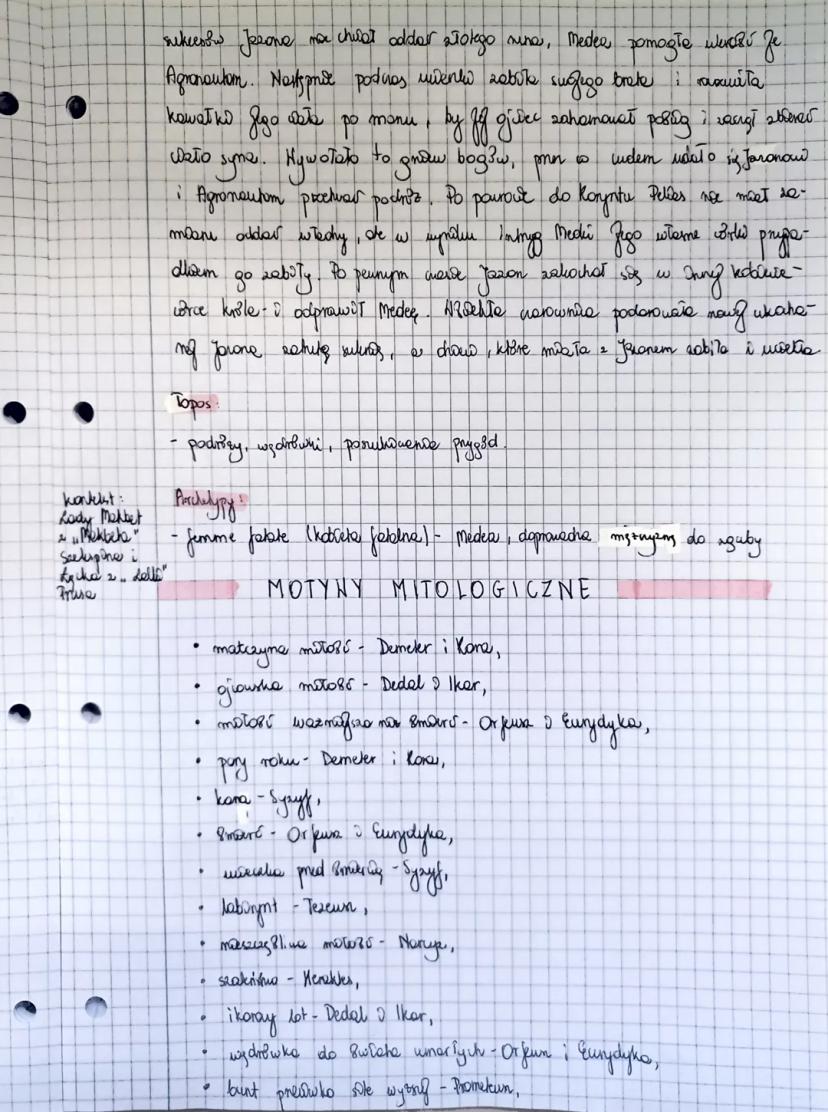 sukcesów Jazona nie chciał oddać złotego runa, Medea pomogła ukraść je
Agronautom. Następnie podczas ucieczki zabiła swojego brata i rzuciła
kawałki jego ciała po morzu, by jej ojciec zahamował pościg i zaczął zbierać
ciało syna. Wywołało to gniew bogów, przez co cudem udało się Jazonowi
i Agronautom przetrwać podróż. Po powrocie do Koryntu Pelias nie miał za-
miaru oddać władzy, ale w wyniku intrygi Medei jego własne córki przypa-
dkiem go zabiły. Po pewnym czasie Jazon zakochał się w innej kobiecie -
córce króla - i odprawił Medeę. Wściekła czarownica podarowała nowej ukocha-
nej Jazona zatrutą suknię, a dzieci, które miała z Jazonem zabiła i uciekła
Topos:
- podróży, wędrówki, poszukiwania przygód.
kontekst:
Lady Makbet
z „Makbeta"
Scelugina i
Łęcka z „Lalki"
Prusa
Archetypy:
- femme fatale (kobieta fatalna) - Medea, doprowadza mężczyznę do zguby
MOTYWY MITOLOGICZNE
• matczyna miłość - Demeter i Kora,
• ojcowska miłość - Dedal i Ikar,
• miłość ważniejsza niż śmierć - Orfeusz i Eurydyka,
• pory roku - Demeter i Kora,
• kara - Syzyf,
• śmierć - Orfeusz i Eurydyka,
• ucieczka przed śmiercią - Syzyf,
• labirynt - Tezeusz,
• nieszczęśliwa miłość - Narcyz,
• szaleństwo - Herakles,
• ikarowy lot - Dedal i Ikar,
• wędrówka do świata umarłych - Orfeusz i Eurydyka,
• bunt przeciwko sile wyższej - Prometeusz,